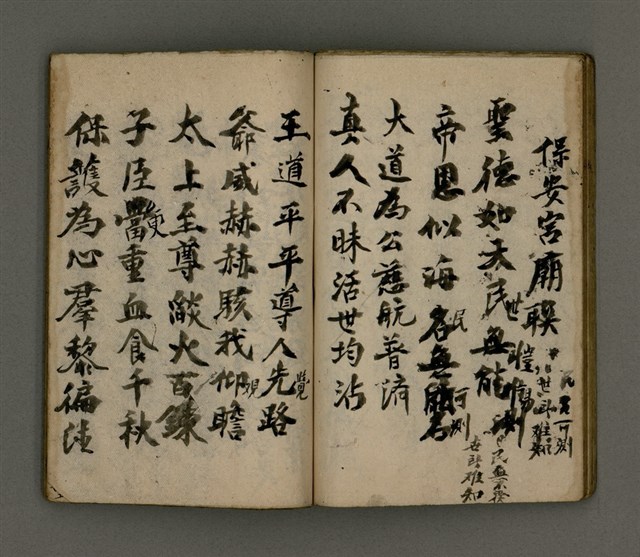 保安宮廟聯
聖德如天民無能
帝恩似海名無
大道為公慈航普濟
真人不昧活世均沾
可測
王道平平導人先路
爺威赫赫駭我仰瞻
覺
太上至尊燄火百鍊
子臣當重血食千秋
便
保護為心羣黎徧